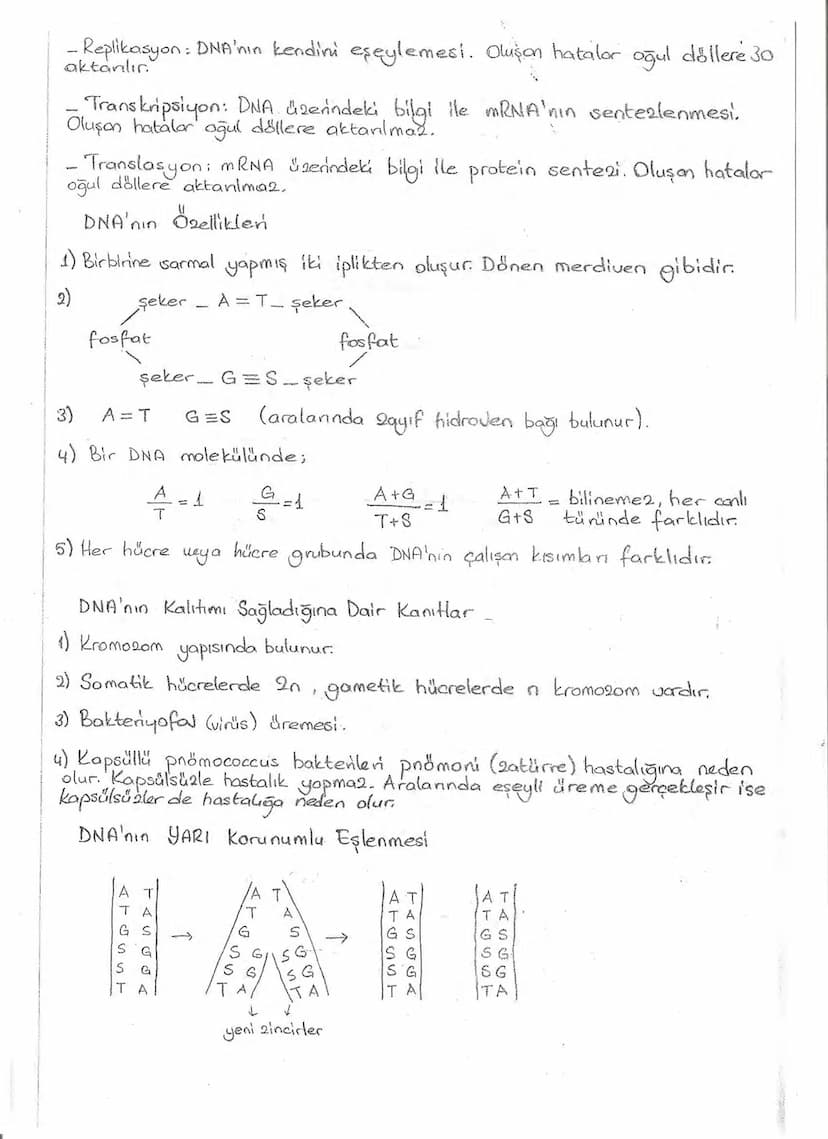 - Replikasyon: DNA'nın kendini eşeylemesi. Oluşan hatalar oğul döllere 30
aktarılır.
- Transkripsiyon: DNA üzerindeki bilgi ile mRNA'nın sentezlenmesi.
Oluşan hatalar oğul döllere aktarılmaz.
- Translasyon: mRNA üzerindeki bilgi ile protein sentezi. Oluşan hatalar
oğul döllere aktarılmaz.
DNA'nın Özellikleri
1) Birbirine sarmal yapmış iki iplikten oluşur. Dönen merdiven gibidir.
2) şeker - A = T - şeker
fosfat fosfat
şeker - G ≡ S - şeker
3) A = T G ≡ S (aralarında zayıf hidrojen bağı bulunur).
4) Bir DNA molekülünde;
A/T = 1 G/S = 1 A+G/T+S = 1 A+T/G+S = bilinemez, her canlı
türünde farklıdır.
5) Her hücre veya hücre grubunda DNA'nın çalışan kısımları farklıdır.
DNA'nın Kalıtımı Sağladığına Dair Kanıtlar -
1) Kromozom yapısında bulunur.
2) Somatik hücrelerde 2n, gametik hücrelerde n kromozom vardır.
3) Bakteriyofaj (virüs) üremesi.
4) Kapsüllü pnömococcus bakterileri pnömoni (zatürre) hastalığına neden
olur. Kapsülsüzle hastalık yapmaz. Aralarında eşeyli üreme gerçekleşir ise
kapsülsüzler de hastalığa neden olur.
DNA'nın YARI Korunumlu Eşlenmesi
A T A T A T A T
T A T A T A T A
G S G S G S G S
S G S G S G S G S G
S G S G S G S G S G
T A → T A T A → T A T A
yeni zincirler